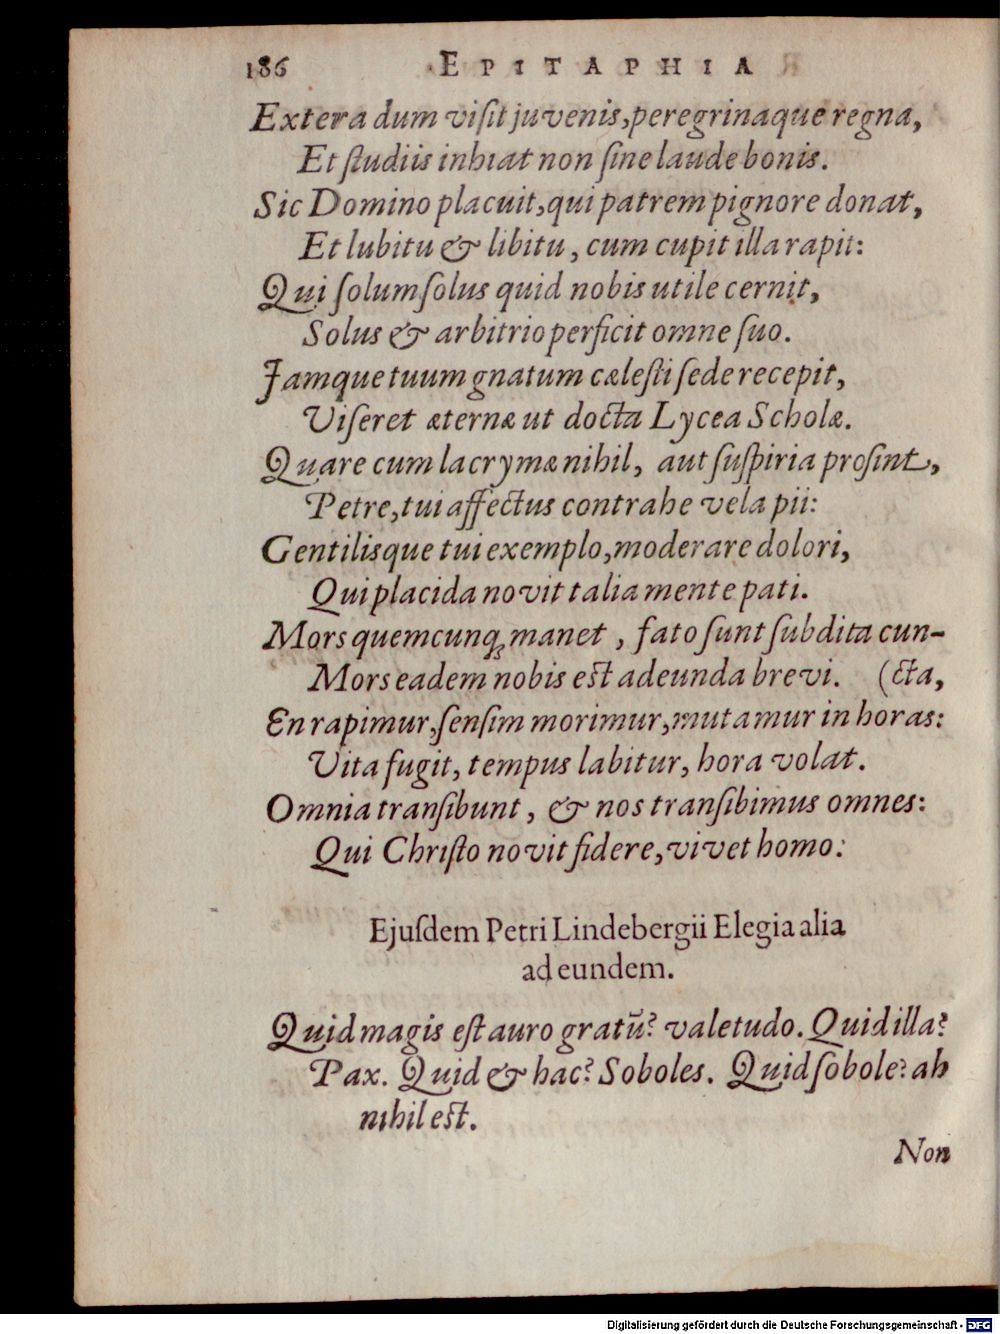 186 EPITAPHIA
Extera dum viſit juvenis, peregrinaque regna,
Et ſtudiis inhiat non ſine laude bonis.
Sic Domino placuit, qui patrem pignore donat,
Et lubitu & libitu, cum cupit illa rapit:
Qui ſolum ſolus quid nobis utile cernit,
Solus & arbitrio perficit omne ſuo.
Jamque tuum gnatum cæleſti ſede recepit,
Viſeret æternæ ut docta Lycea Scholæ.
Quare cum lacrymæ nihil, aut ſuſpiria proſint,
Petre, tui affectus contrahe vela pii:
Gentilisque tui exemplo, moderare dolori,
Qui placida novit talia mente pati.
Mors quemcunq; manet, fato ſunt ſubdita cun-
Mors eadem nobis eſt adeunda brevi. (cta,
En rapimur, ſenſim morimur, mutamur in horas:
Vita fugit, tempus labitur, hora volat.
Omnia tranſibunt, & nos tranſibimus omnes:
Qui Chriſto novit fidere, vivet homo.
Ejuſdem Petri Lindebergii Elegia alia
ad eundem.
Quid magis eſt auro gratū? valetudo. Quid illa?
Pax. Quid & hac? Soboles. Quid ſobole? ah
nihil eſt.
Non
Digitalisierung gefördert durch die Deutsche Forschungsgemeinschaft - DFG